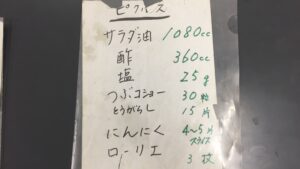 ピクルス
サラダ油 1080cc
酢 360cc
塩 25g
つぶコショー 30粒
とうがらし 15片
にんにく 4~5片
スライス
ローリエ 3枚